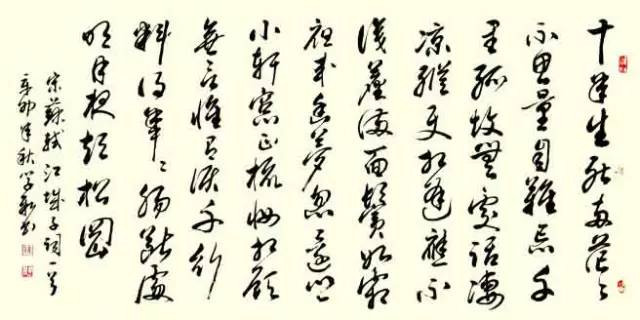 十年生死兩茫々
不思量自難忘千
里孤墳無處話淒
涼縱使相逢應不
識塵滿面鬢如霜
夜來幽夢忽還鄉
小軒窗正梳妝相顧
無言惟有淚千行
料得年々腸斷處
明月夜短松岡
宋蘇軾江城子詞一首
辛卯年秋